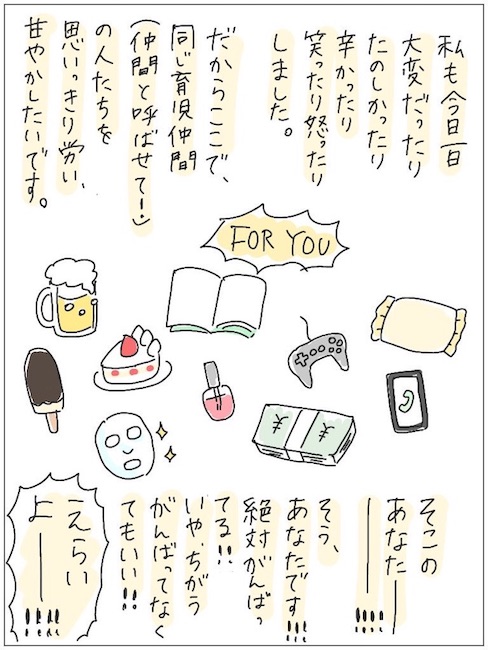 私も今日一日
大変だったり
たのしかったり
辛かったり
笑ったり怒ったり
しました。
だからここで、
同じ育児仲間
(仲間と呼ばせて!)
の人たちを
思いっきり労い、
甘やかしたいです。
FOR YOU
¥ ¥
そこの
あなた——
———!!!!
そう、
あなたです!!!
絶対がんばっ
てる!!
いや、ちがう
がんばってなく
てもいい!!
えらい
よ———!!!!